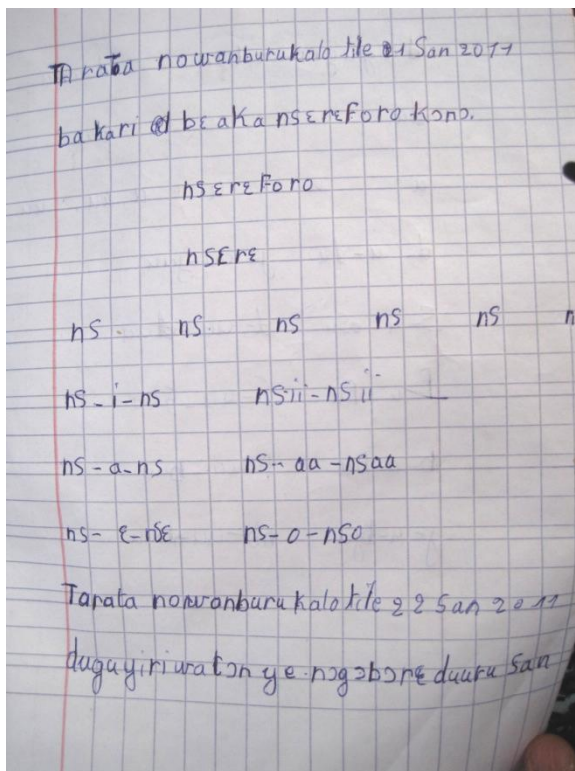 Tarata nowanburukalo tile 21 San 2011
bakari bɛ aka nsɛrɛforo kɔnɔ.
nsɛrɛforo
nsɛrɛ
ns ns ns ns ns n
ns - i - ns nsii - nsii
ns - a - ns ns - aa - nsaa
ns - ɛ - nsɛ ns - o - nso
Tarata nowanburu kalo tile 22 San 2011
duguyiriwatɔn ye nɔgɔbɔrɛ duuru San